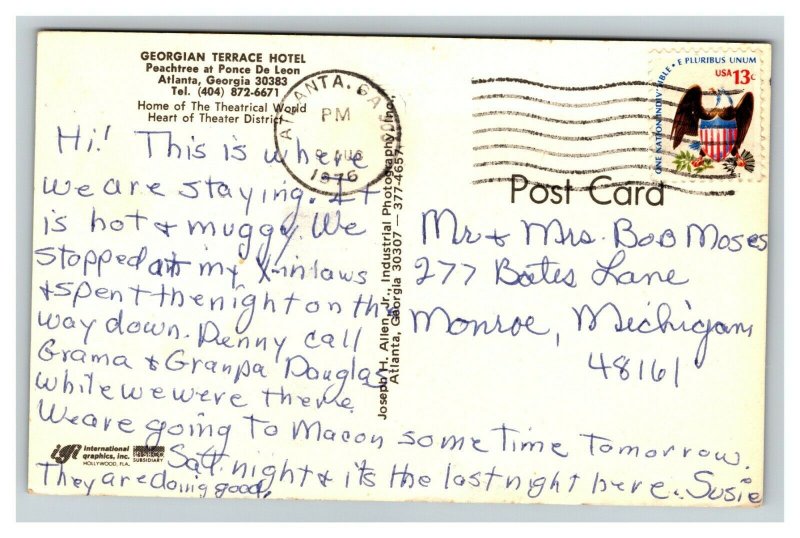 GEORGIAN TERRACE HOTEL
Peachtree at Ponce De Leon
Atlanta, Georgia 30383
Tel. (404) 872-6671
Home of The Theatrical World
Heart of Theater District
ATLANTA, GA
PM
AUG
1976
ONE NATION INDIVISIBLE • E PLURIBUS UNUM
USA 13c
Post Card
Hi! This is where
we are staying. It
is hot & muggy. We
stopped at my X-inlaws
& spent the night on the
way down. Denny call
Grama & Granpa Douglas
while we were there.
We are going to Macon some time tomorrow.
Sat. night & it's the last night here. Susie
They are doing good.
Mr & Mrs. Bob Moses
277 Bates Lane
Monroe, Michigan
48161
Joseph H. Allen, Jr., Industrial Photography, Inc.,
Atlanta, Georgia 30307 — 377-4657
igi international
graphics, inc.
HOLLYWOOD, FLA.
SUBSIDIARY